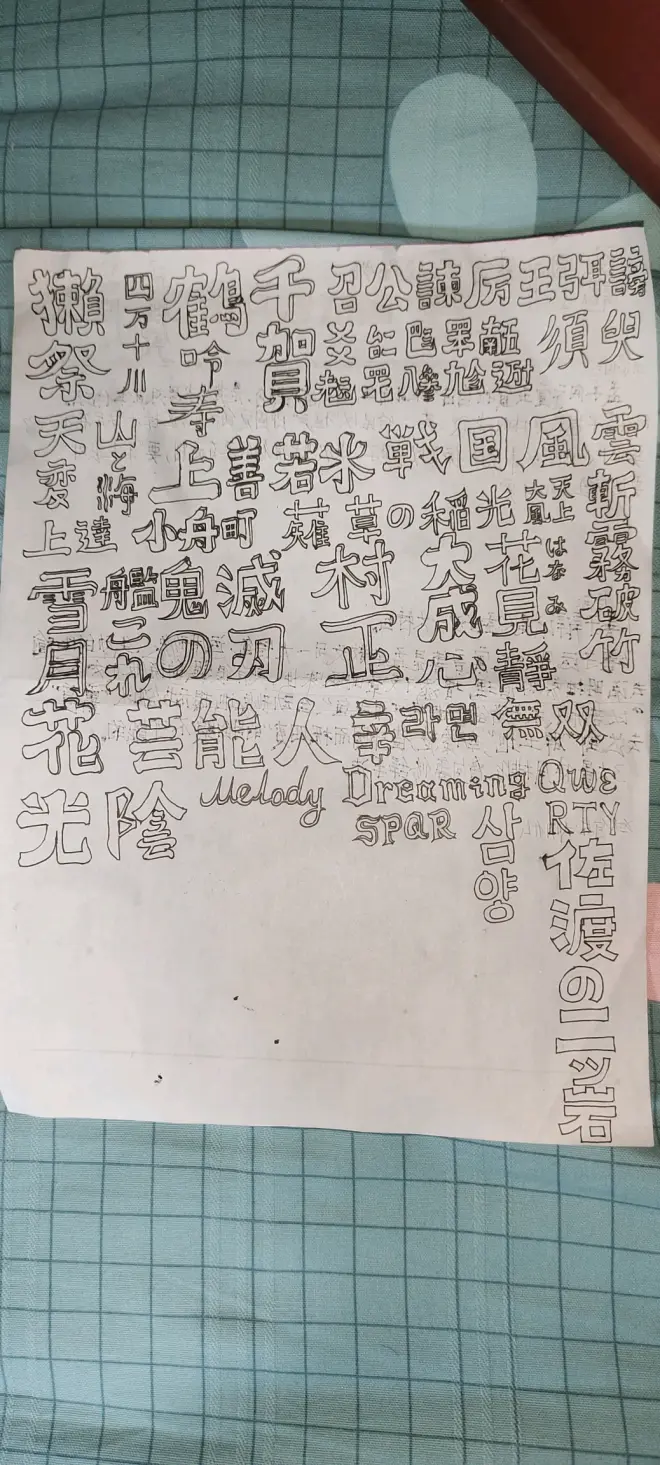 獺祭
四万十川
鶴吟寿
千賀
召公諫厉王弭謗
須臾
天変
山と海
上善若氷
戦国風雲
上達
小舟町
薙草の稲光
天上大風
斬霧破竹
雪月花
艦これ
鬼滅の刃
村正
大成心
花見
はなみ
靜
芸能人
幸
라면
無双
光陰
Melody
Dreaming
SPQR
QWE
RTY
삼양
佐渡の二ツ岩